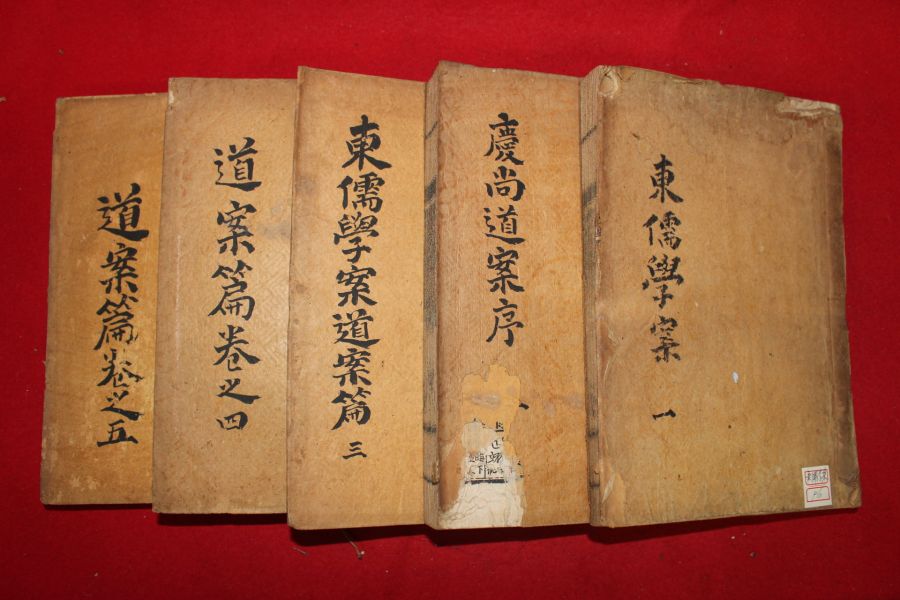 東儒學案 一
慶尚道案序
東儒學案道案篇 三
道案篇卷之四
道案篇卷之五